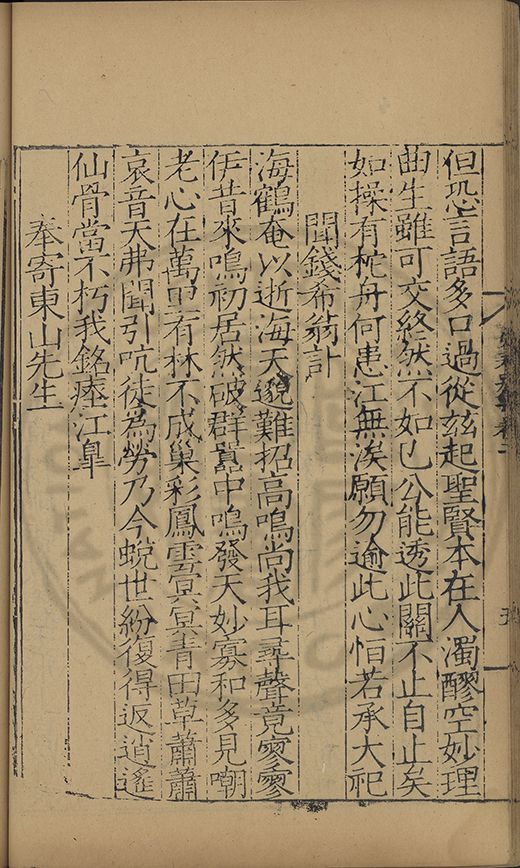 但恐言語多口過從兹起聖賢本在人濁醪空妙理
曲生雖可交終然不如已公能透此關不止自止矣
如操有柁舟何患江無涘願勿逾此心怕若承大祀
聞錢希翁訃
海鶴奄以逝海天邈難招高鳴尚我耳尋聲竟寥寥
伊昔來鳴初居然破群囂中鳴發天妙寡和多見嘲
老心在萬里有林不成巢彩鳳雲冥冥青田草蕭蕭
哀音天弗聞引吭徒為勞乃今蛻世紛復得返逍遙
仙骨當不朽我銘瘞江皐
奉寄東山先生